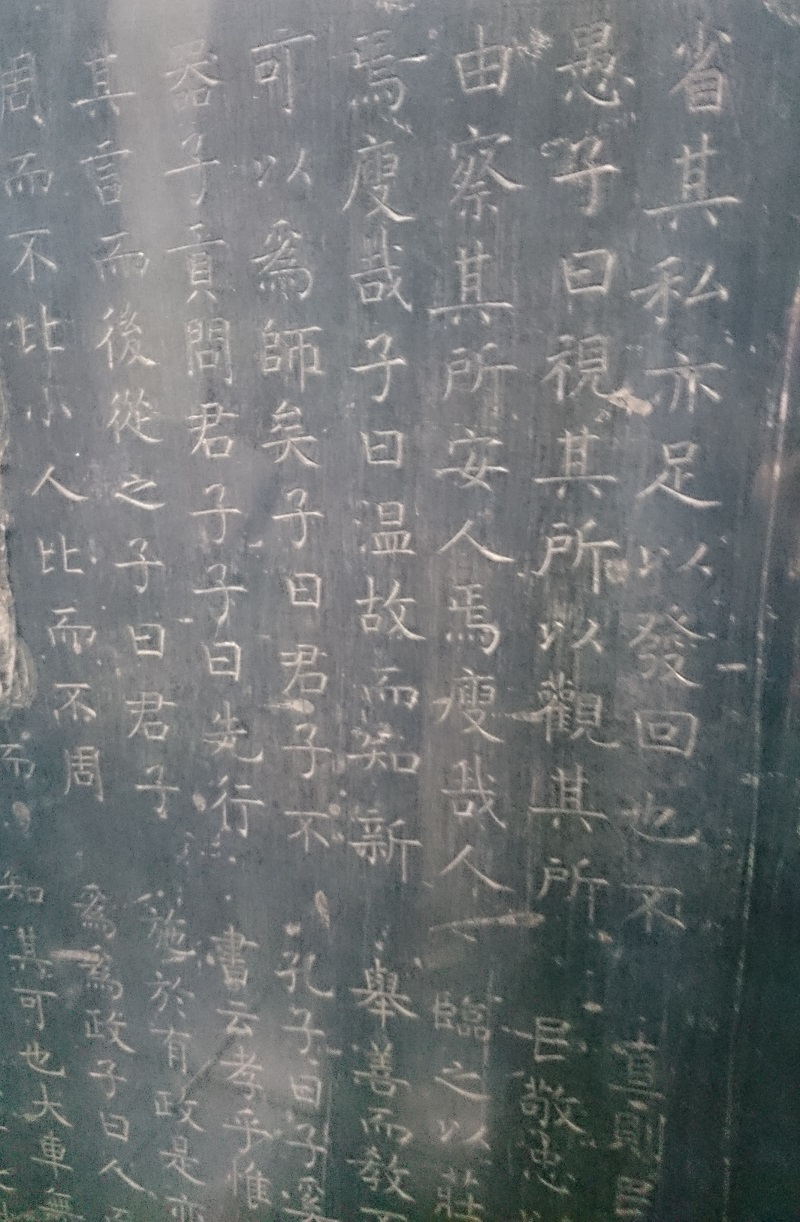 省其私亦足以發回也不
愚子曰視其所以觀其所
由察其所安人焉廋哉人
焉廋哉子曰温故而知新
可以爲師矣子曰君子不
器子貢問君子子曰先行
其言而後從之子曰君子
周而不比小人比而不周
而
直則民
臣敬忠
臨之以莊
舉善而教
孔子曰子奚
書云孝乎惟
施於有政是亦
爲爲政子曰人而
知其可也大車無